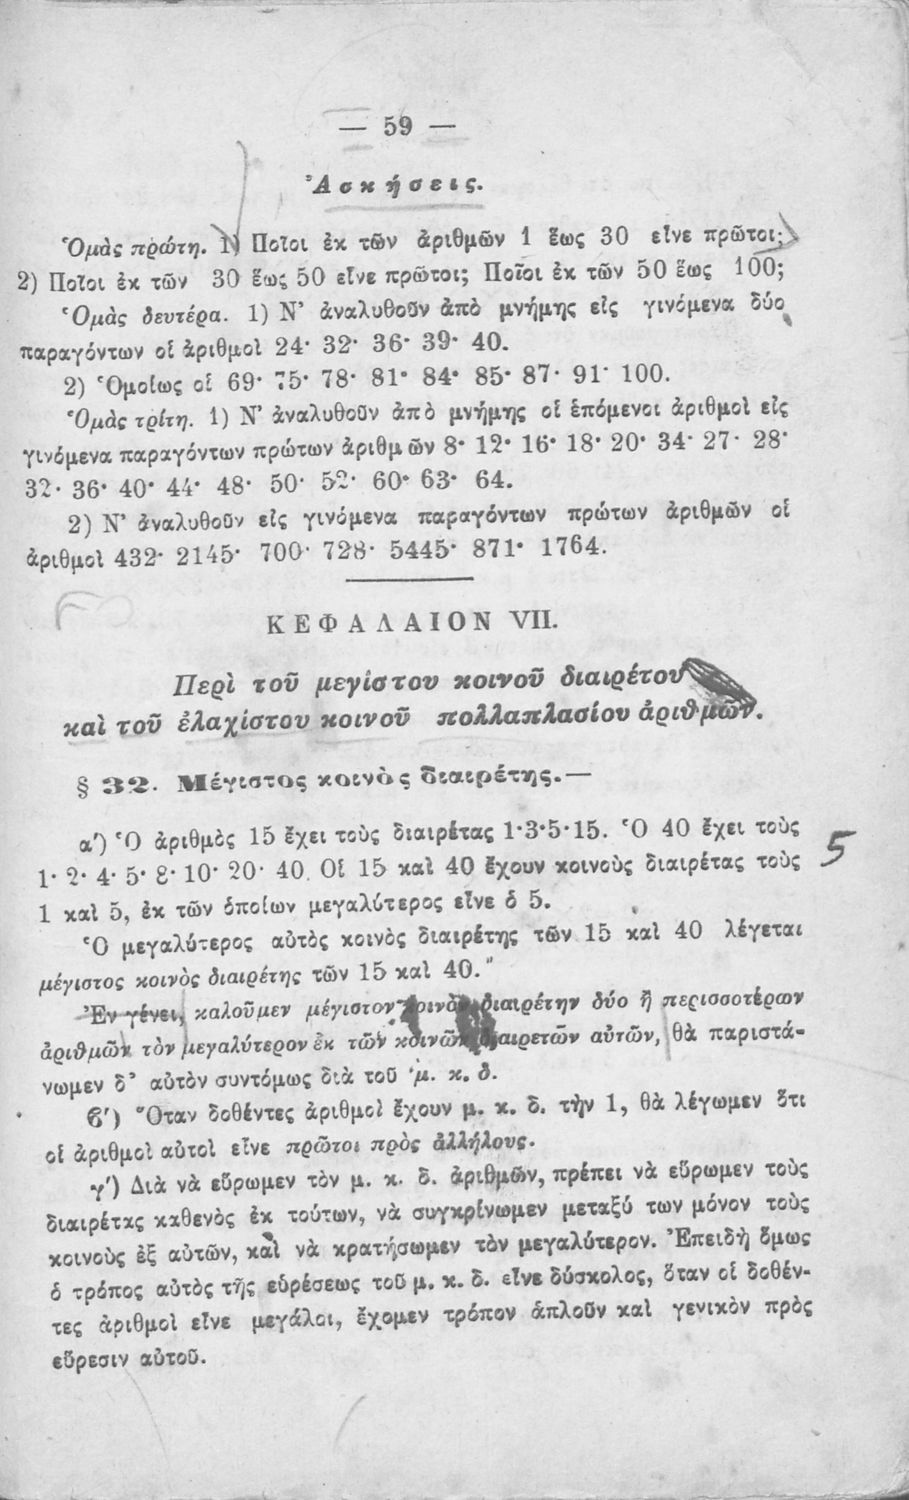 — 59 —
Ἀσκήσεις.
Ὁμὰς πρώτη. 1) Ποῖοι ἐκ τῶν ἀριθμῶν 1 ἕως 30 εἶνε πρῶτοι;
2) Ποῖοι ἐκ τῶν 30 ἕως 50 εἶνε πρῶτοι; Ποῖοι ἐκ τῶν 50 ἕως 100;
Ὁμὰς δευτέρα. 1) Ν' ἀναλυθοῦν ἀπὸ μνήμης εἰς γινόμενα δύο
παραγόντων οἱ ἀριθμοὶ 24· 32· 36· 39· 40.
2) Ὁμοίως οἱ 69· 75· 78· 81· 84· 85· 87· 91· 100.
Ὁμὰς τρίτη. 1) Ν' ἀναλυθοῦν ἀπὸ μνήμης οἱ ἑπόμενοι ἀριθμοὶ εἰς
γινόμενα παραγόντων πρώτων ἀριθμῶν 8· 12· 16· 18· 20· 34· 27· 28·
32· 36· 40· 44· 48· 50· 52· 60· 63· 64.
2) Ν' ἀναλυθοῦν εἰς γινόμενα παραγόντων πρώτων ἀριθμῶν οἱ
ἀριθμοὶ 432· 2145· 700· 728· 5445· 871· 1764.
ΚΕΦΑΛΑΙΟΝ VII.
Περὶ τοῦ μεγίστου κοινοῦ διαιρέτου
καὶ τοῦ ἐλαχίστου κοινοῦ πολλαπλασίου ἀριθμῶν.
§ 32. Μέγιστος κοινὸς διαιρέτης.—
α') Ὁ ἀριθμὸς 15 ἔχει τοὺς διαιρέτας 1·3·5·15. Ὁ 40 ἔχει τοὺς
5
1· 2· 4· 5· 8· 10· 20· 40. Οἱ 15 καὶ 40 ἔχουν κοινοὺς διαιρέτας τοὺς
1 καὶ 5, ἐκ τῶν ὁποίων μεγαλύτερος εἶνε ὁ 5.
Ὁ μεγαλύτερος αὐτὸς κοινὸς διαιρέτης τῶν 15 καὶ 40 λέγεται
μέγιστος κοινὸς διαιρέτης τῶν 15 καὶ 40.
Ἐν γένει, καλοῦμεν μέγιστον κοινὸν διαιρέτην δύο ἢ περισσοτέρων
ἀριθμῶν τὸν μεγαλύτερον ἐκ τῶν κοινῶν διαιρετῶν αὐτῶν, θὰ παριστά-
νωμεν δ' αὐτὸν συντόμως διὰ τοῦ μ. κ. δ.
ϐ') Ὅταν δοθέντες ἀριθμοὶ ἔχουν μ. κ. δ. τὴν 1, θὰ λέγωμεν ὅτι
οἱ ἀριθμοὶ αὐτοὶ εἶνε πρῶτοι πρὸς ἀλλήλους.
γ') Διὰ νὰ εὕρωμεν τὸν μ. κ. δ. ἀριθμῶν, πρέπει νὰ εὕρωμεν τοὺς
διαιρέτας καθενὸς ἐκ τούτων, νὰ συγκρίνωμεν μεταξύ των μόνον τοὺς
κοινοὺς ἐξ αὐτῶν, καὶ νὰ κρατήσωμεν τὸν μεγαλύτερον. Ἐπειδὴ ὅμως
ὁ τρόπος αὐτὸς τῆς εὑρέσεως τοῦ μ. κ. δ. εἶνε δύσκολος, ὅταν οἱ δοθέν-
τες ἀριθμοὶ εἶνε μεγάλοι, ἔχομεν τρόπον ἁπλοῦν καὶ γενικὸν πρὸς
εὕρεσιν αὐτοῦ.